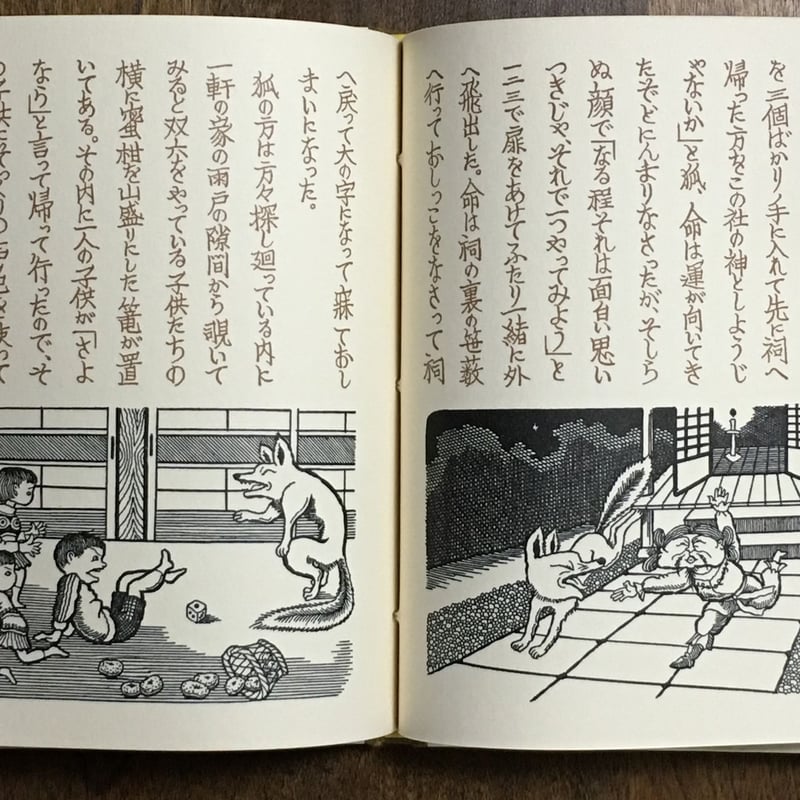 を三個ばかり手に入れて先に祠へ
帰った方をこの社の神としようじ
ゃないか」と狐、命は運が向いてき
たぞとにんまりなさったが、そしら
ぬ顔で「なる程それは面白い思い
つきじゃ、それで一つやってみよう」と
一二三で扉をあけてふたり一緒に外
へ飛出した。命は祠の裏の笹薮
へ行っておしっこをなさって祠
へ戻って大の字になって寐ておし
まいになった。
狐の方は方々探し廻っている内に
一軒の家の雨戸の隙間から覗いて
みると双六をやっている子供たちの
横に蜜柑を山盛りにした篭が置
いてある。その内に一人の子供が「さよ
なら」と言って帰って行ったので、そ